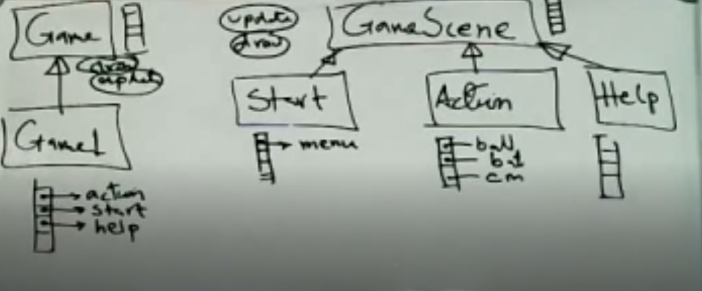 Game
draw
update
Game1
action
start
help
update
draw
GameScene
Start
menu
Action
ball
bat
cm
Help